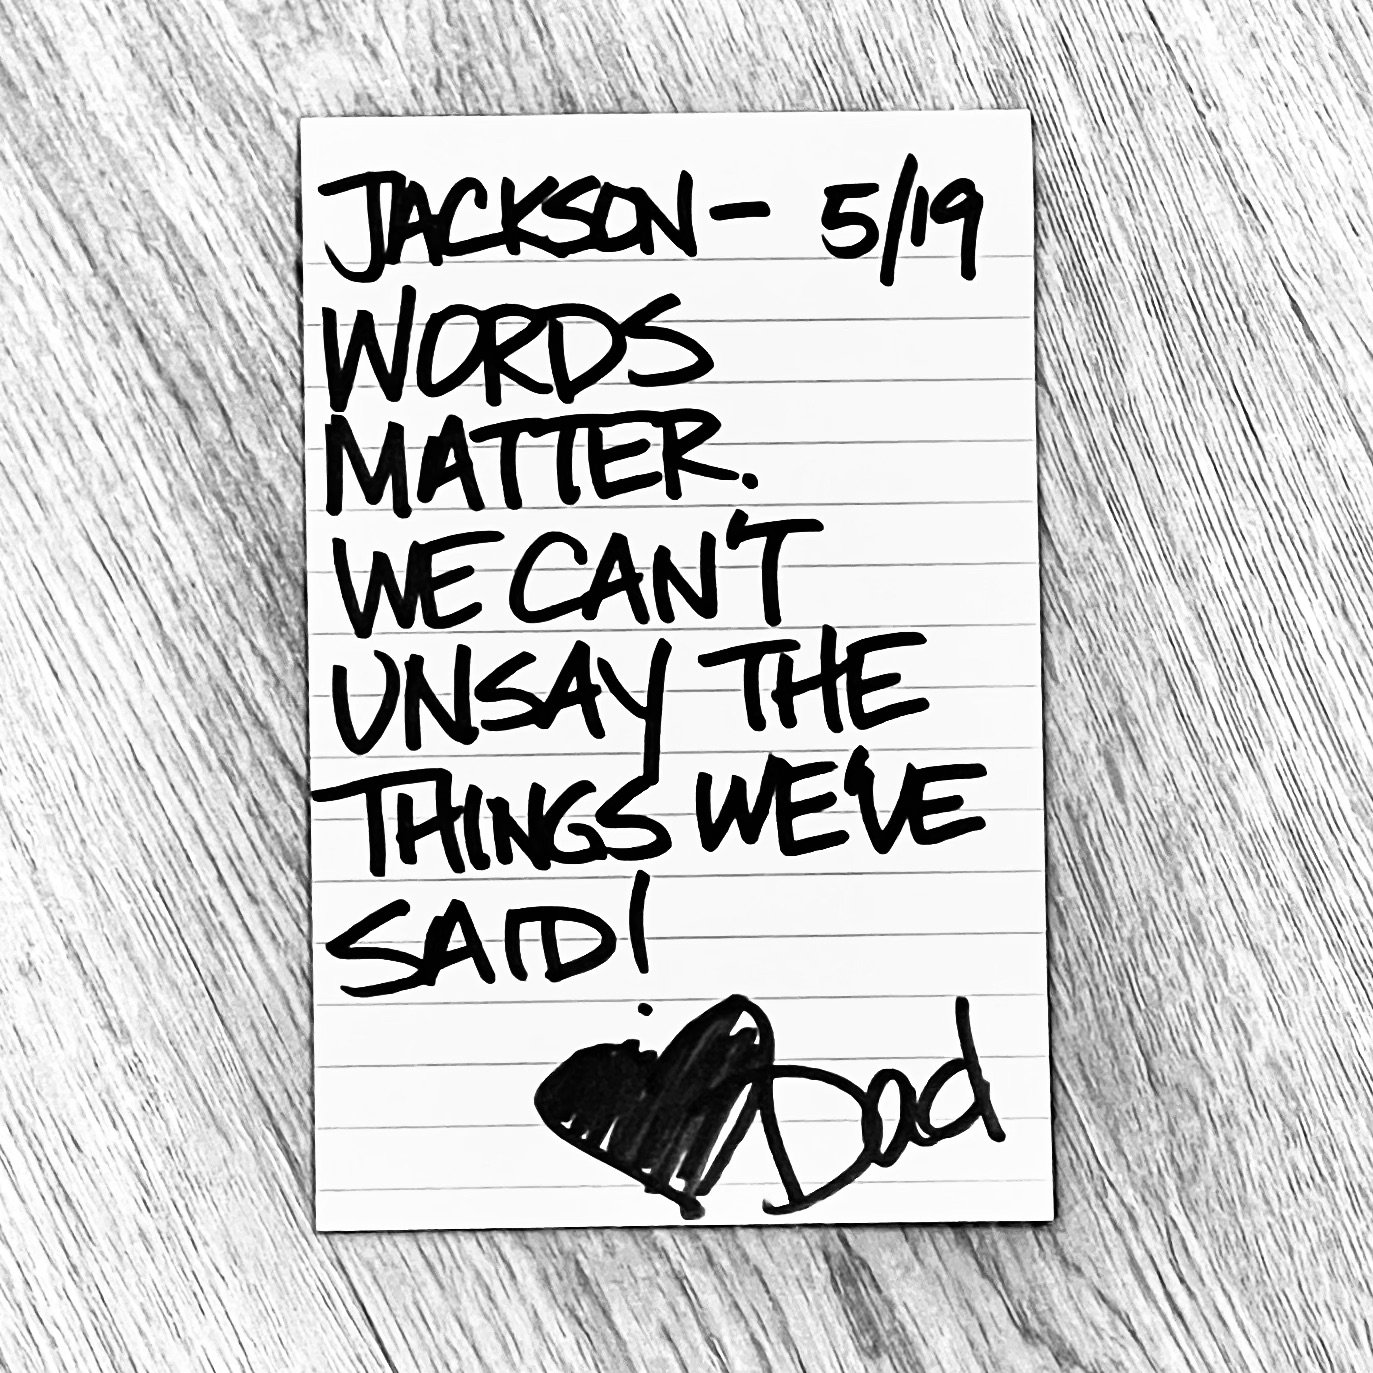 JACKSON— 5/19
WORDS
MATTER.
WE CAN'T
UNSAY THE
THINGS WE'VE
SAID!
Dad